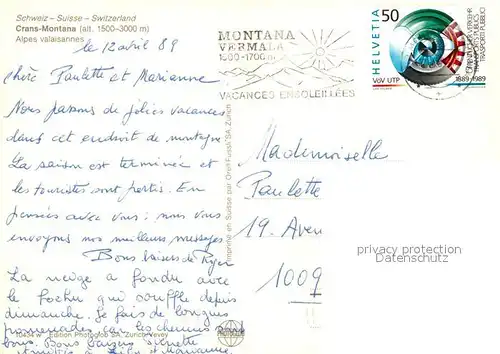 Schweiz - Suisse - Switzerland
Crans-Montana (alt. 1500-3000 m)
Alpes valaisannes
le 12 avril 89
chère Paulette et Marianne
Nous passons de jolies vacances
dans cet endroit de montagne
La saison est terminée et
les touristes sont partis. En
pensées avec vous : nous vous
envoyons nos meilleurs messages
Bons baisers de Roger
La neige a fondu avec
le foehn qui souffle depuis
dimanche. Je fais de longues
promenades sur les chemins
Bons baisers
Marianne
10434 w Edition Photoglob SA, Zürich-Vevey
Imprimé en Suisse par Orell Füssli SA Zürich
MONTANA
VERMALA
1500-1700 m
VACANCES ENSOLEILLEES
HELVETIA 50
VöV UTP
ÖFFENTLICHER VERKEHR
TRANSPORTS PUBLICS
TRASPORTI PUBBLICI
1889-1989
Mademoiselle
Paulette
19. Aven
1009
privacy protection
Datenschutz